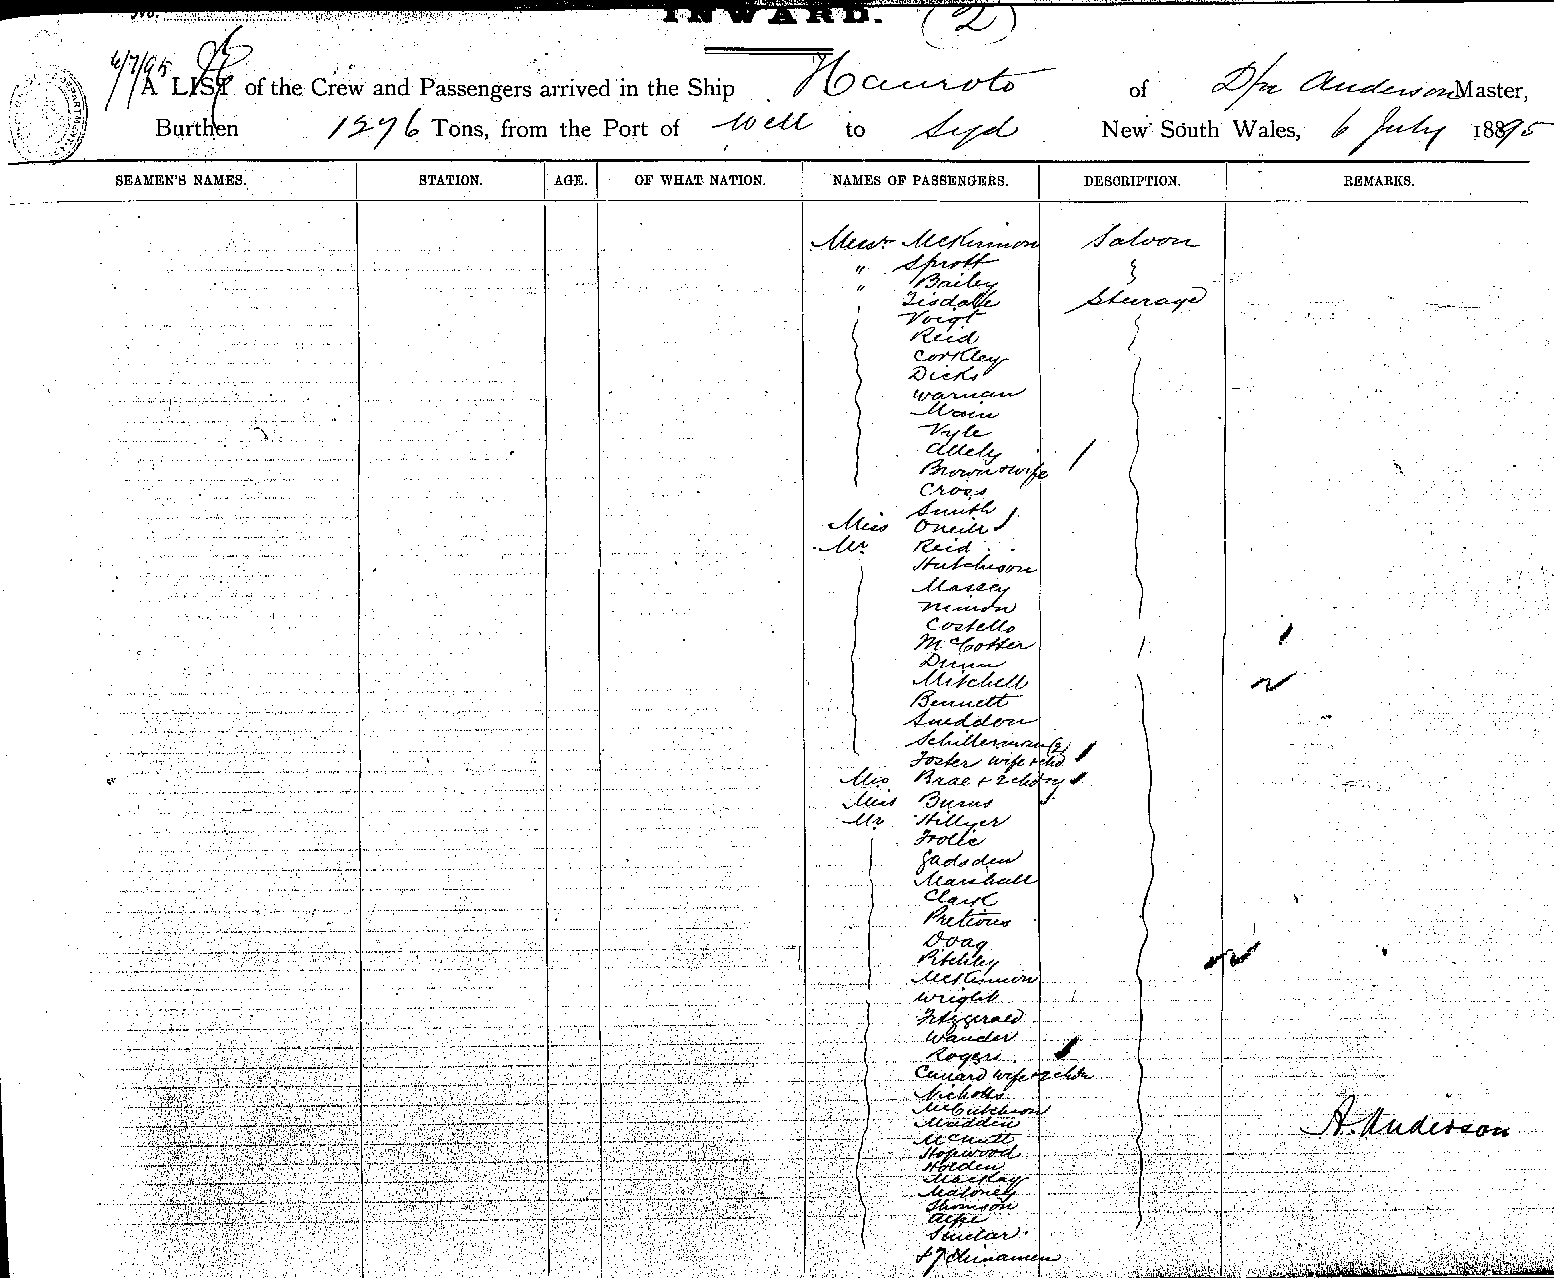 No.
INWARD. (2)
6/7/95
A LIST of the Crew and Passengers arrived in the Ship Hauroto of Dpr Anderson Master,
Burthen 1276 Tons, from the Port of Well to Syd New South Wales, 6 July 1895
SEAMEN'S NAMES. STATION. AGE. OF WHAT NATION. NAMES OF PASSENGERS. DESCRIPTION. REMARKS.
Messrs McKinnon Saloon
" Sprott
" Bailey
Tisdale Steerage
Voigt
Reid
Corkley
Dicks
Warnan
Main
Vyle
Allely
Brown + wife
Cross
Smith
Miss Oneill
Mr Reid
Hutchison
Massey
Costello
McCotter
Dunn
Mitchell
Bennett
Sneddon
Schillerman (2)
Foster wife + chd
Mrs Brae + 2 chd
Miss Burns
Mr Hillyer
Frolic
Gadsden
Marshall
Clark
Pretious
Doag
Pitchley
McKinnon
Wright
Fitzgerald
Wander
Rogers
Cunard wife + 2 chdn
Nicholls
McCutcheon
Madden
McNutt
Hopwood
Holden
Mackay
Maloney
Thomson
Alpe
Sinclar
+ 7 Chinamen
A. Anderson